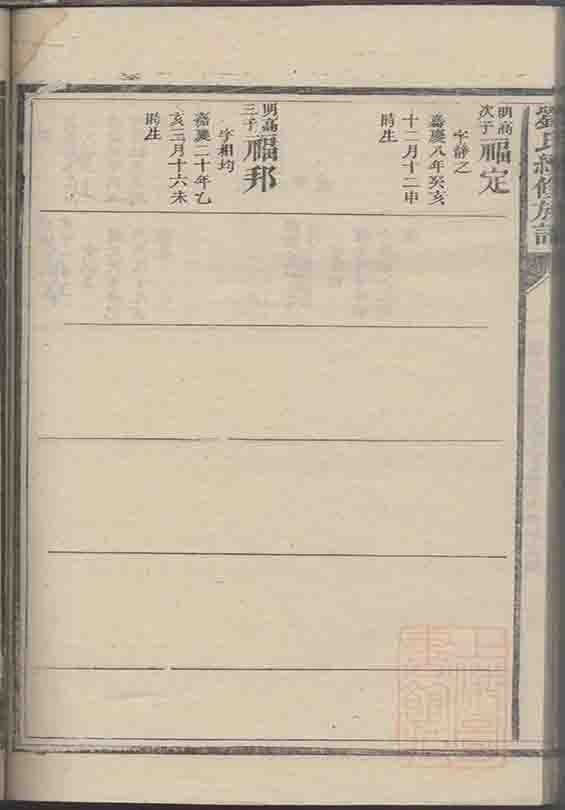 劉氏續修族譜
明高
次子
福定
字靜之
嘉慶八年癸亥
十二月十二申
時生
明高
三子
福邦
字相均
嘉慶二十年乙
亥二月十六未
時生